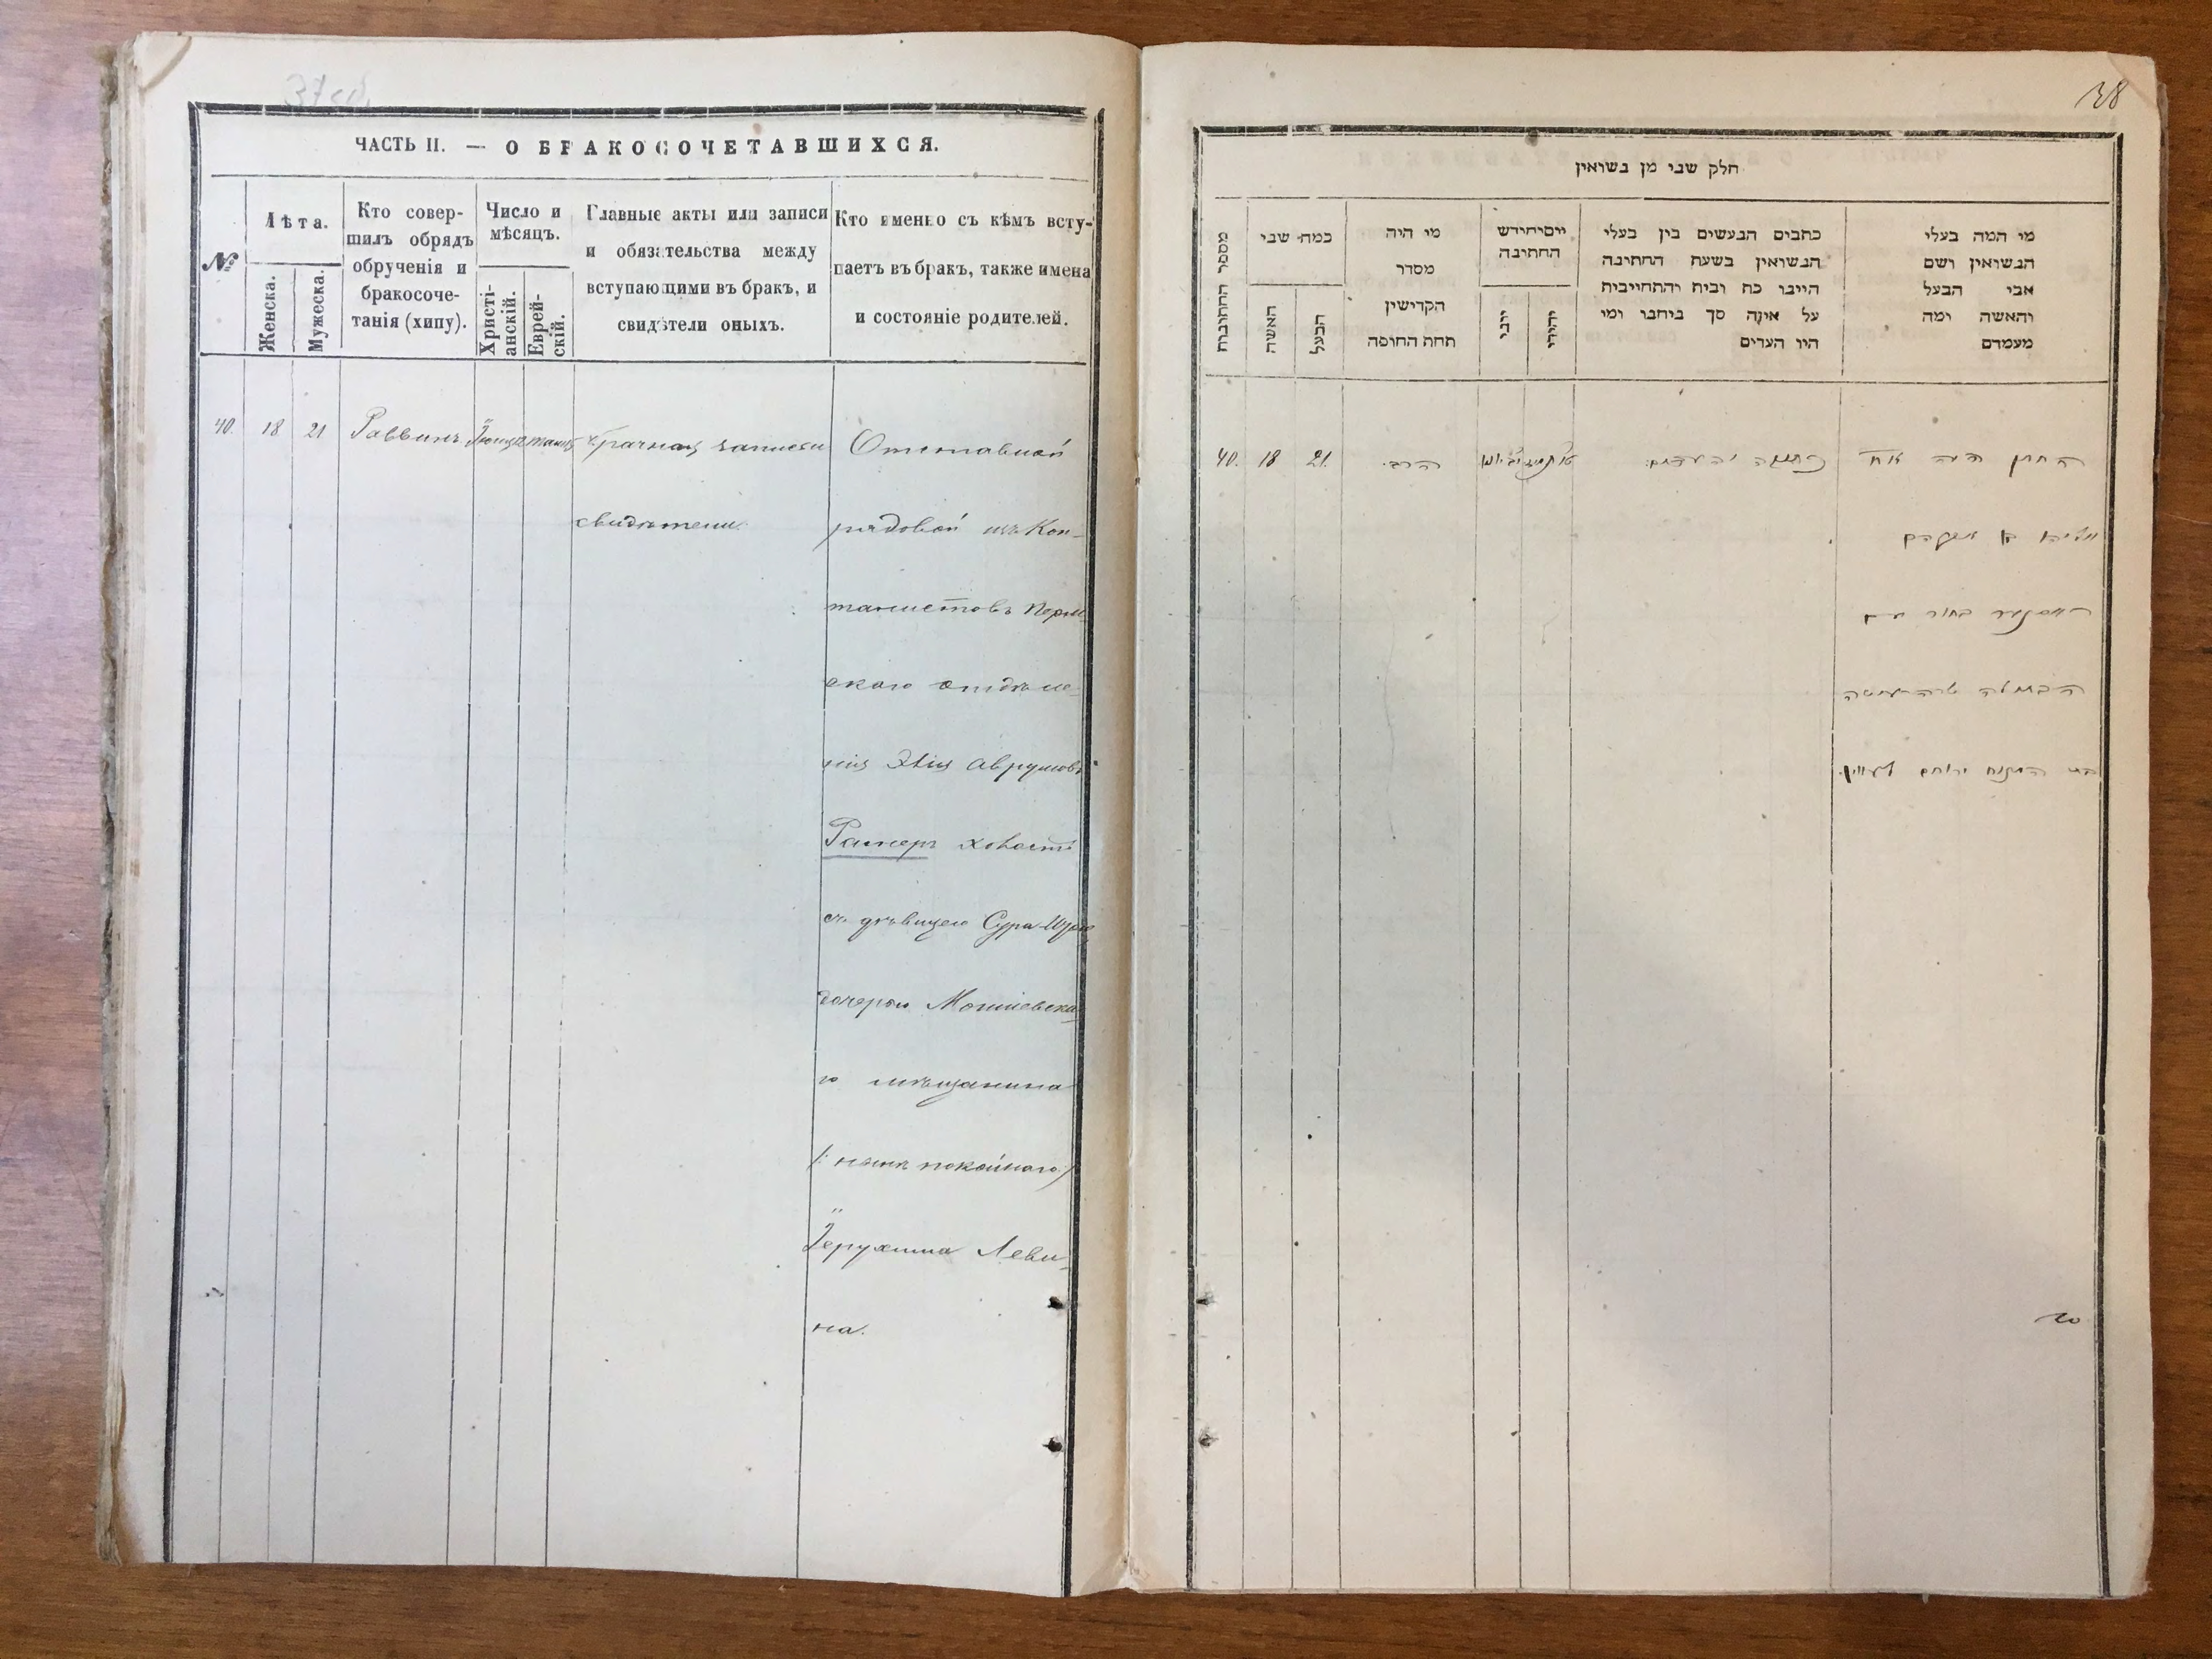 37 об.
ЧАСТЬ II. — О БРАКОСОЧЕТАВШИХСЯ.
№
Лѣта.
Женска.
Мужеска.
Кто совер-
шилъ обрядъ
обрученія и
бракосоче-
танія (хипу).
Число и
мѣсяцъ.
Христі-
анскій.
Еврей-
скій.
Главные акты или записи
и обязательства между
вступающими въ бракъ, и
свидѣтели оныхъ.
Кто именно съ кѣмъ всту-
паетъ въ бракъ, также имена
и состояніе родителей.
40. 18 21 Раввинъ брачная записи Отставной
свидѣтели. рядовой изъ Кон-
танистовъ Перм-
скаго отдѣле-
нія Эвія Аврумовъ
Ратнеръ холостъ
съ дѣвицею Сура-
дочерью Могилевска-
го мѣщанина
(: нынѣ покойнаго :)
Іерухима Леви-
на.
38
חלק שני מן נשואין
מספר החתונות
כמה שני
האשה
הבעל
מי היה
מסדר
הקדישין
תחת החופה
יום וחודש
החתונה
יוני
יהודי
כתבים הנעשים בין בעלי
הנשואין בשעת החתונה
היינו כח ובית והתחייבות
על איזה סך ביחבו ומי
היו העדים
מי המה בעלי
הנשואין ושם
אבי הבעל
והאשה ומה
מעמדם
40. 18 21. הרב. כתובה והעדים. החתן היה
בן אברהם
בחור עם
הבתולה שרה
בת המנוח ירוחם לעווין.